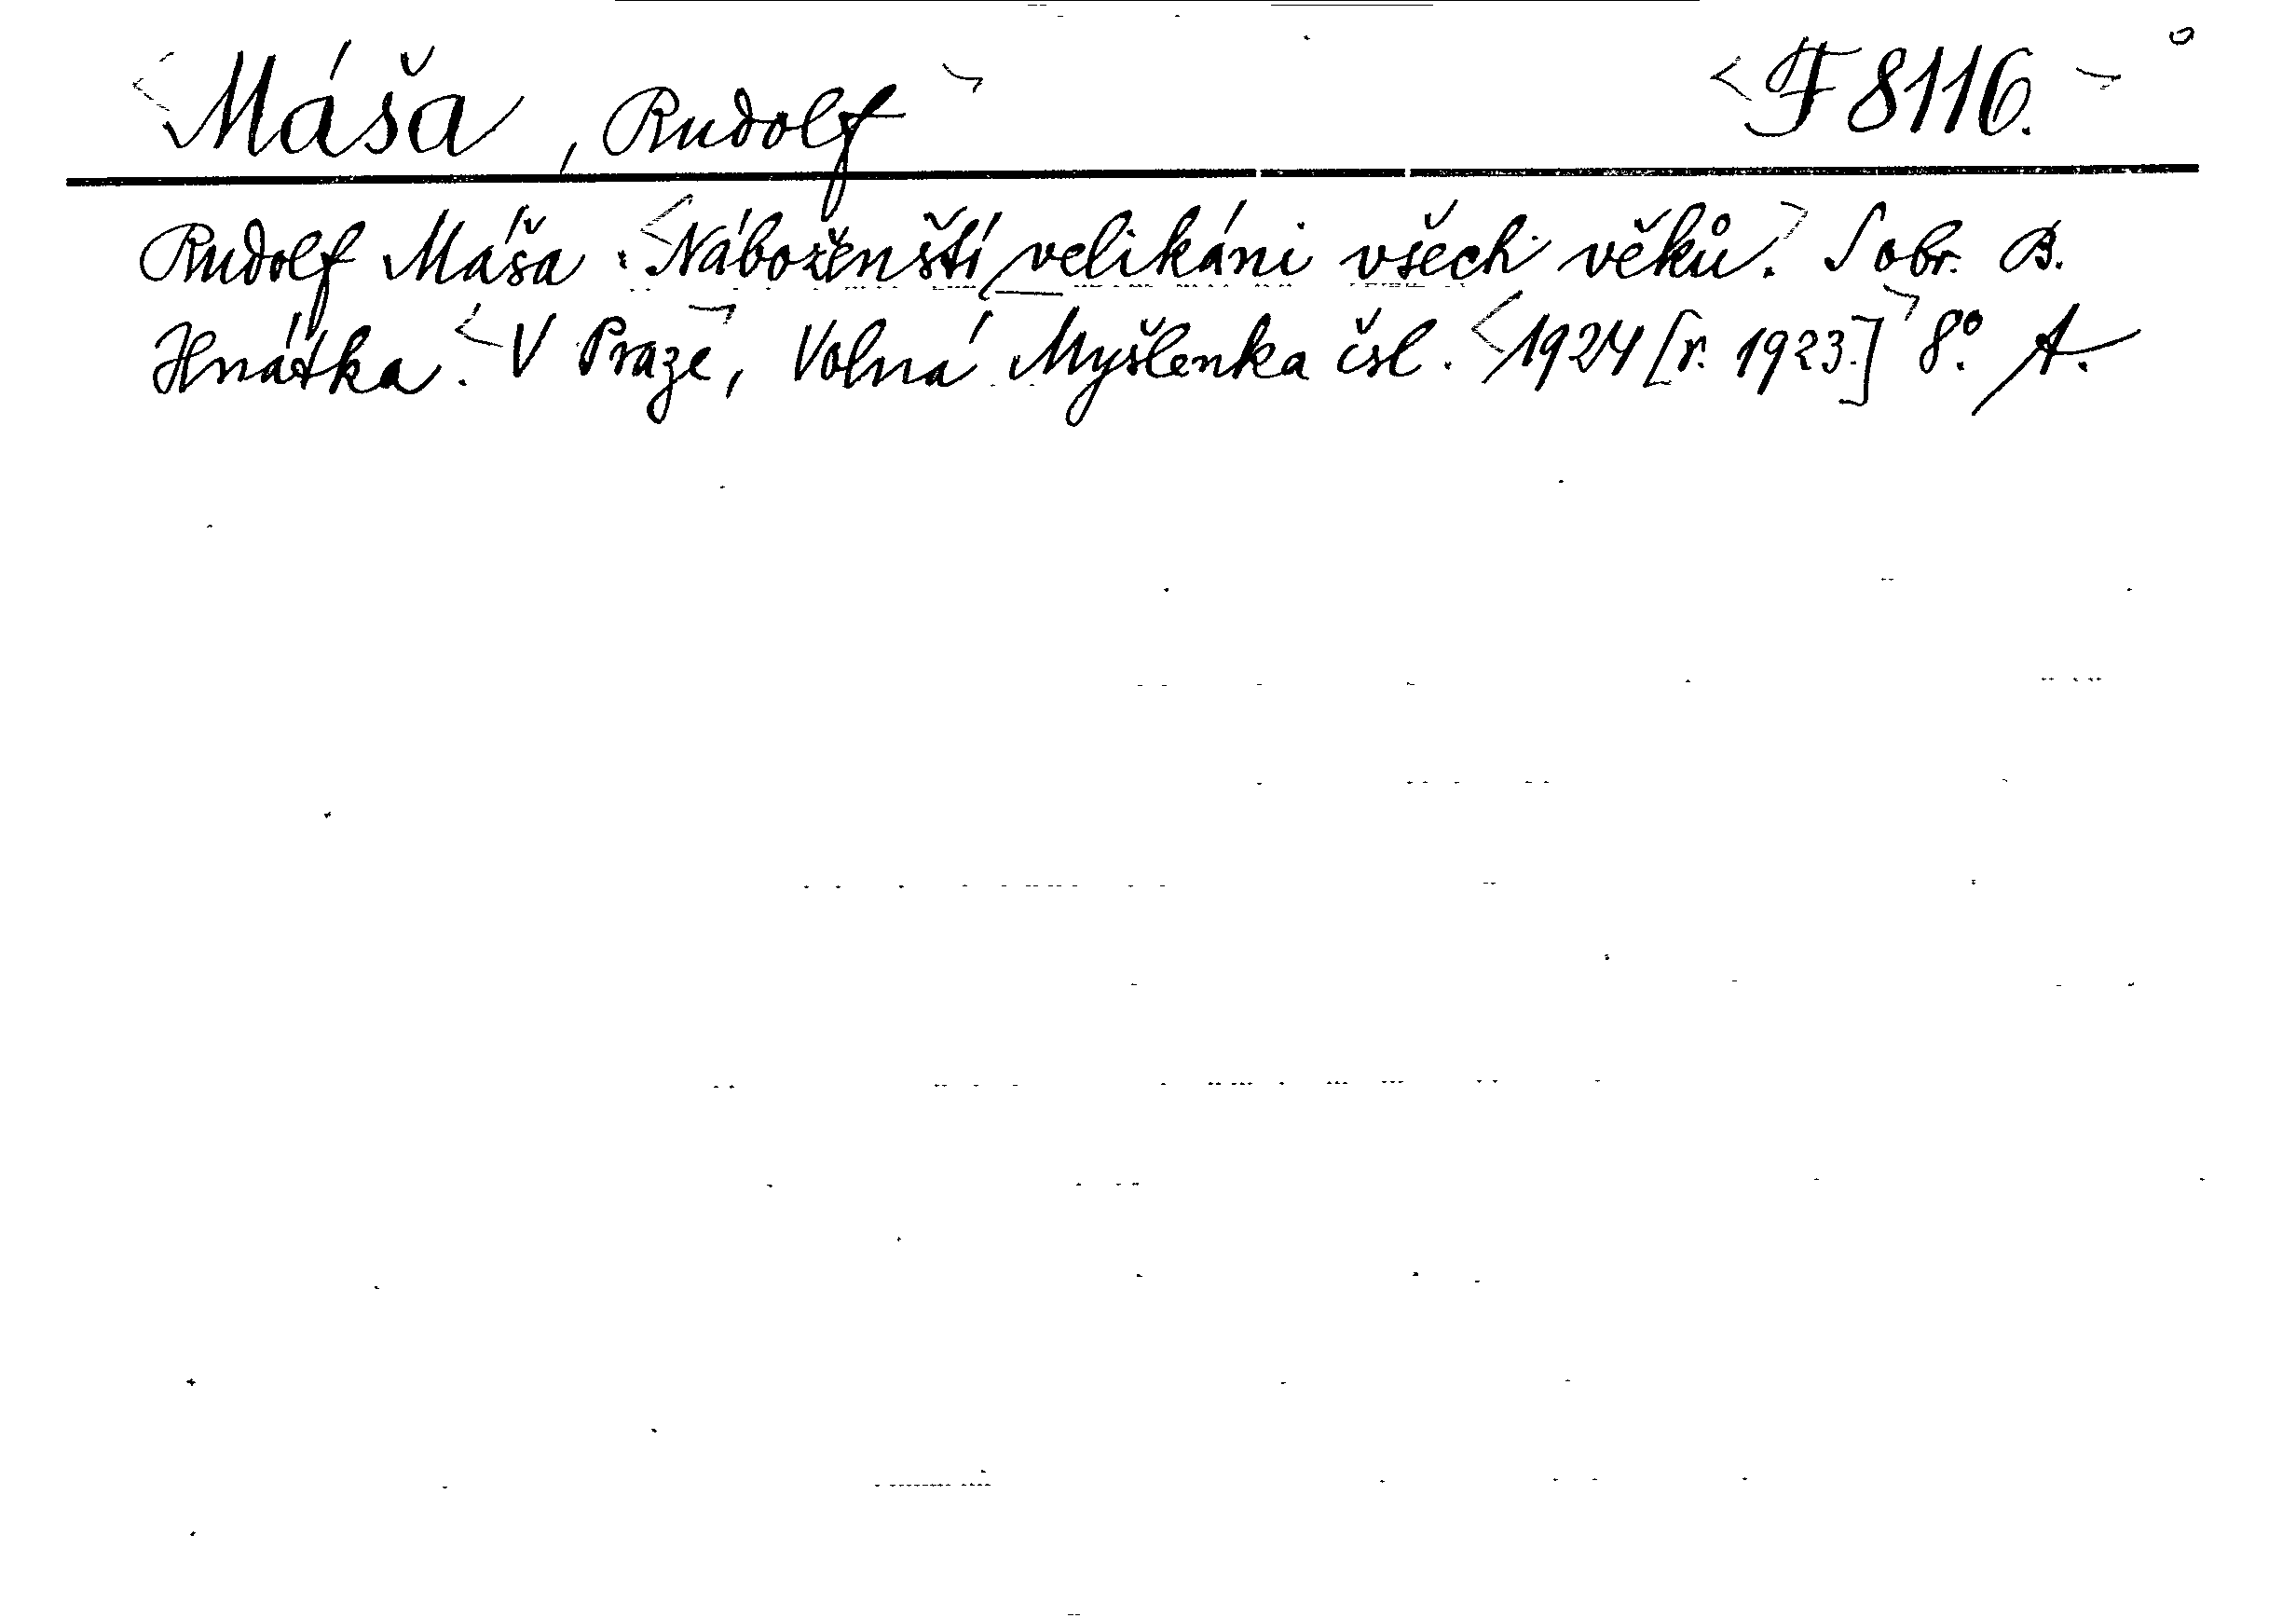 <Máša, Rudolf> <F 8116.>
Rudolf Máša. <Náboženští velikáni všech věků.> S obr. B.
Hnátka. <V Praze>, Volná Myšlenka čsl. <1924 [r. 1923.]> 8°. A.